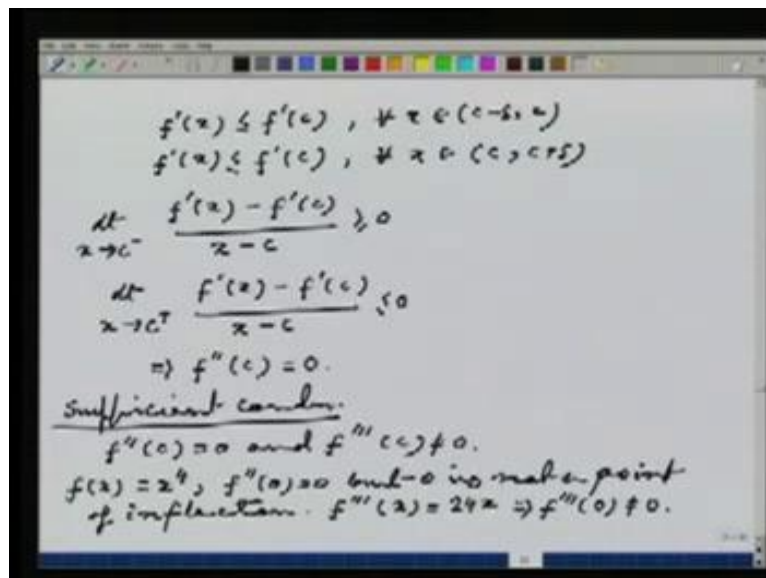 f'(x) ≤ f'(c) , ∀ x ∈ (c-δ, c)
f'(x) ≤ f'(c) , ∀ x ∈ (c, c+δ)
lt x→c⁻ (f'(x) - f'(c))/(x - c) ≥ 0
lt x→c⁺ (f'(x) - f'(c))/(x - c) ≤ 0
⇒ f''(c) = 0.
Sufficient condn.
f''(c) = 0 and f'''(c) ≠ 0.
f(x) = x⁴, f''(0) = 0 but 0 is not a point
of inflection. f'''(x) = 24x ⇒ f'''(0) ≠ 0.